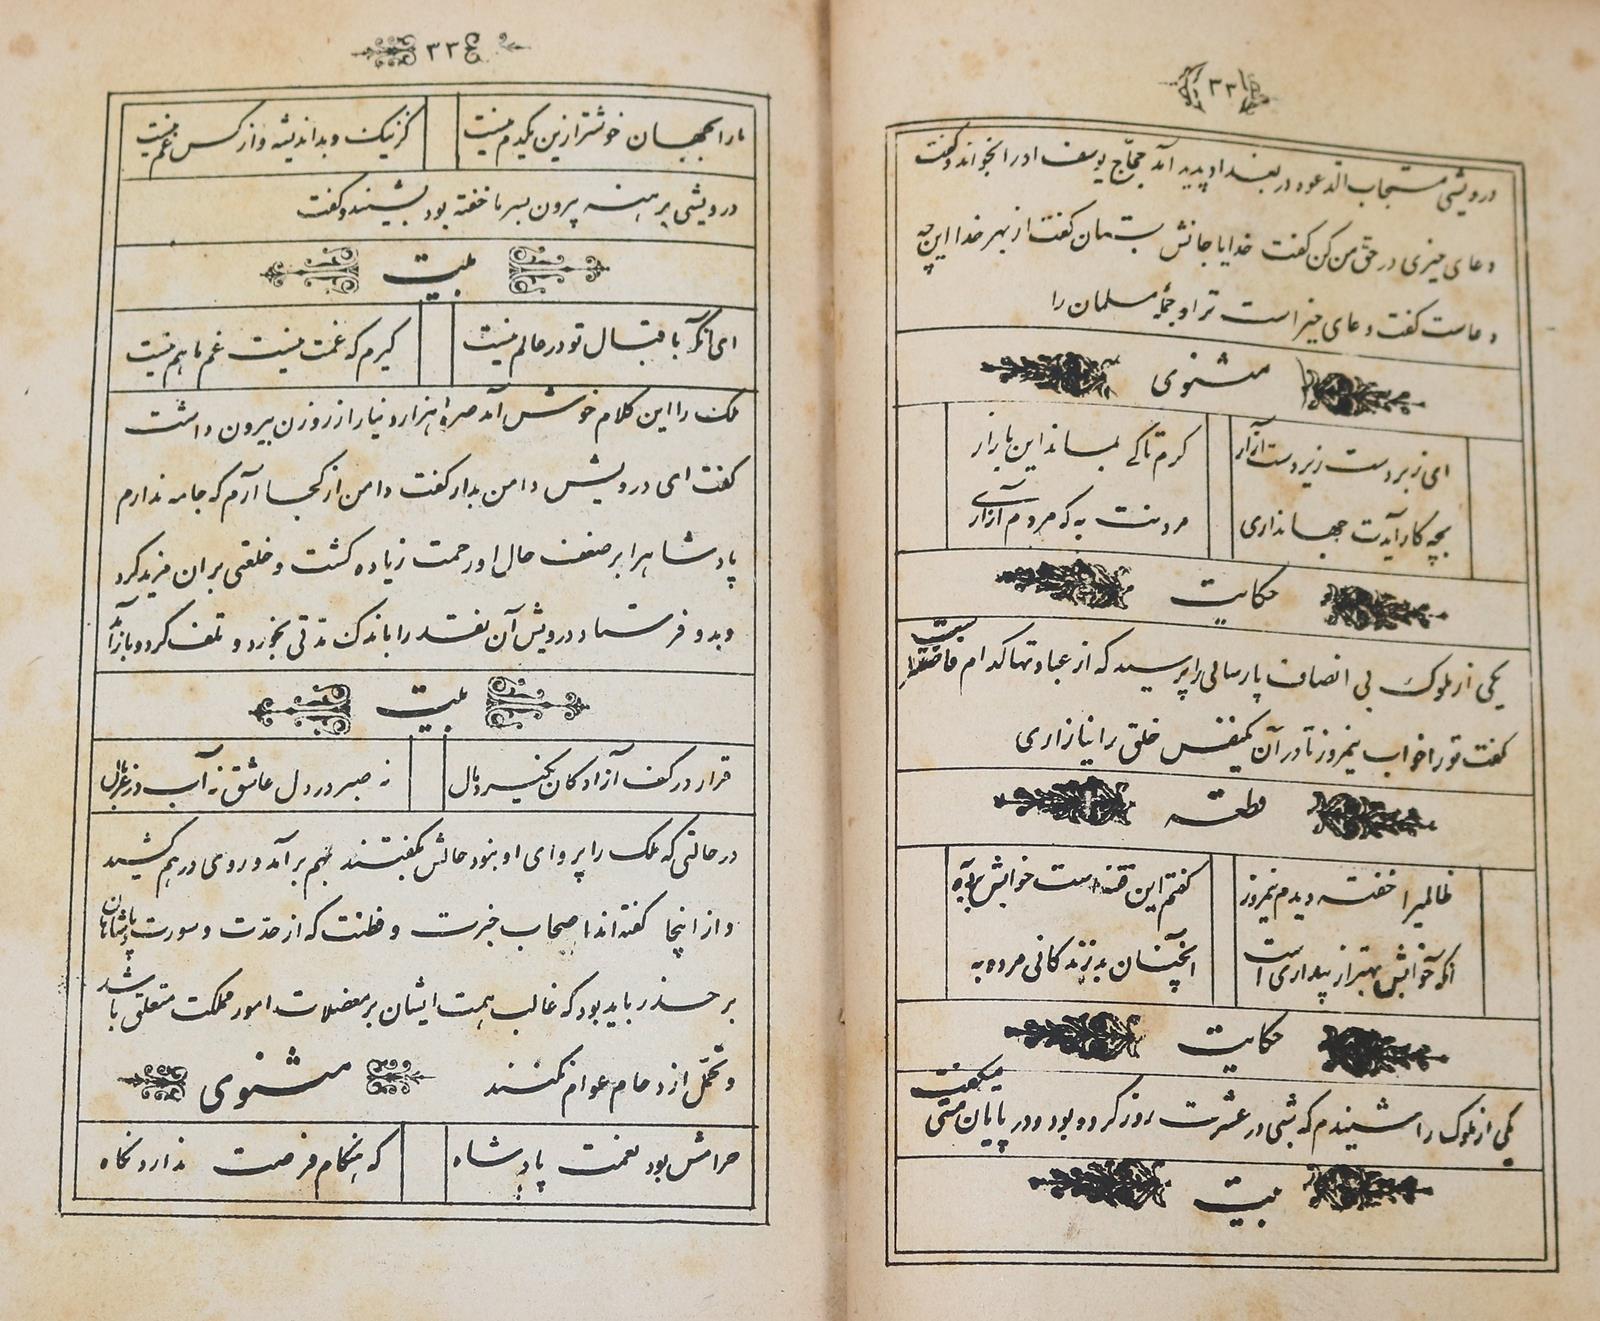 ۳۳
درویشی مستجاب الدعوه در بغداد پدید آمد حجّاج یوسف او را بخواند و گفت
دعای خیری در حق من کن گفت خدایا جانش بستان گفت از بهر خدا این چه
دعاست گفت دعای خیر است ترا و جمله مسلمان را
مثنوی
ای زبردست زیردست آزار گرم تا کی بماند این بازار
بچه کار آیدت جهانداری مردنت به که مردم آزاری
حکایت
یکی از ملوک بی انصاف پارسائی را پرسید که از عبادتها کدام فاضلتر است
گفت تو را خواب نیمروز تا در آن یکنفس خلق را نیازاری
قطعه
ظالمیرا خفته دیدم نیمروز گفتم این فتنه است خوابش برده به
آنکه خوابش بهتر از بیداری است آنچنان بد زندگانی مرده به
حکایت
یکی از ملوک را شنیدم که شبی در عشرت روز کرده بود و در پایان مستی میگفت
بیت
۳۳۴
ما را بجهان خوشتر ازین یکدم نیست کز نیک و بد اندیشه و از کس غم نیست
درویشی برهنه برون بسرما خفته بود بشنید و گفت
بیت
ای آنکه با قبال تو در عالم نیست گیرم که غمت نیست غم ما هم نیست
ملک را این کلام خوش آمد صره هزار دینار از روزن بیرون داشت
گفت ای درویش دامن بدار گفت دامن از کجا آرم که جامه ندارم
پادشاهرا بر ضعف حال او رحمت زیاده گشت و خلعتی بران مزید کرد
و بدو فرستاد درویش آن نقد را باندک مدتی بخورد و تلف کرد و باز آمد
بیت
قرار در کف آزادگان نگیرد مال نه صبر در دل عاشق نه آب در غربال
در حالتی که ملک را پروای او نبود حالش بگفتند بهم برآمد و روی در هم کشید
و از اینجا گفته‌اند اصحاب خبرت و فطنت که از حدّت و سورت پادشاهان
بر حذر باید بود که غالب همت ایشان بر معضلات امور مملکت متعلق باشد
و تحمّل ازدحام عوام نکنند مثنوی
حرامش بود نعمت پادشاه که هنگام فرصت ندارد نگاه